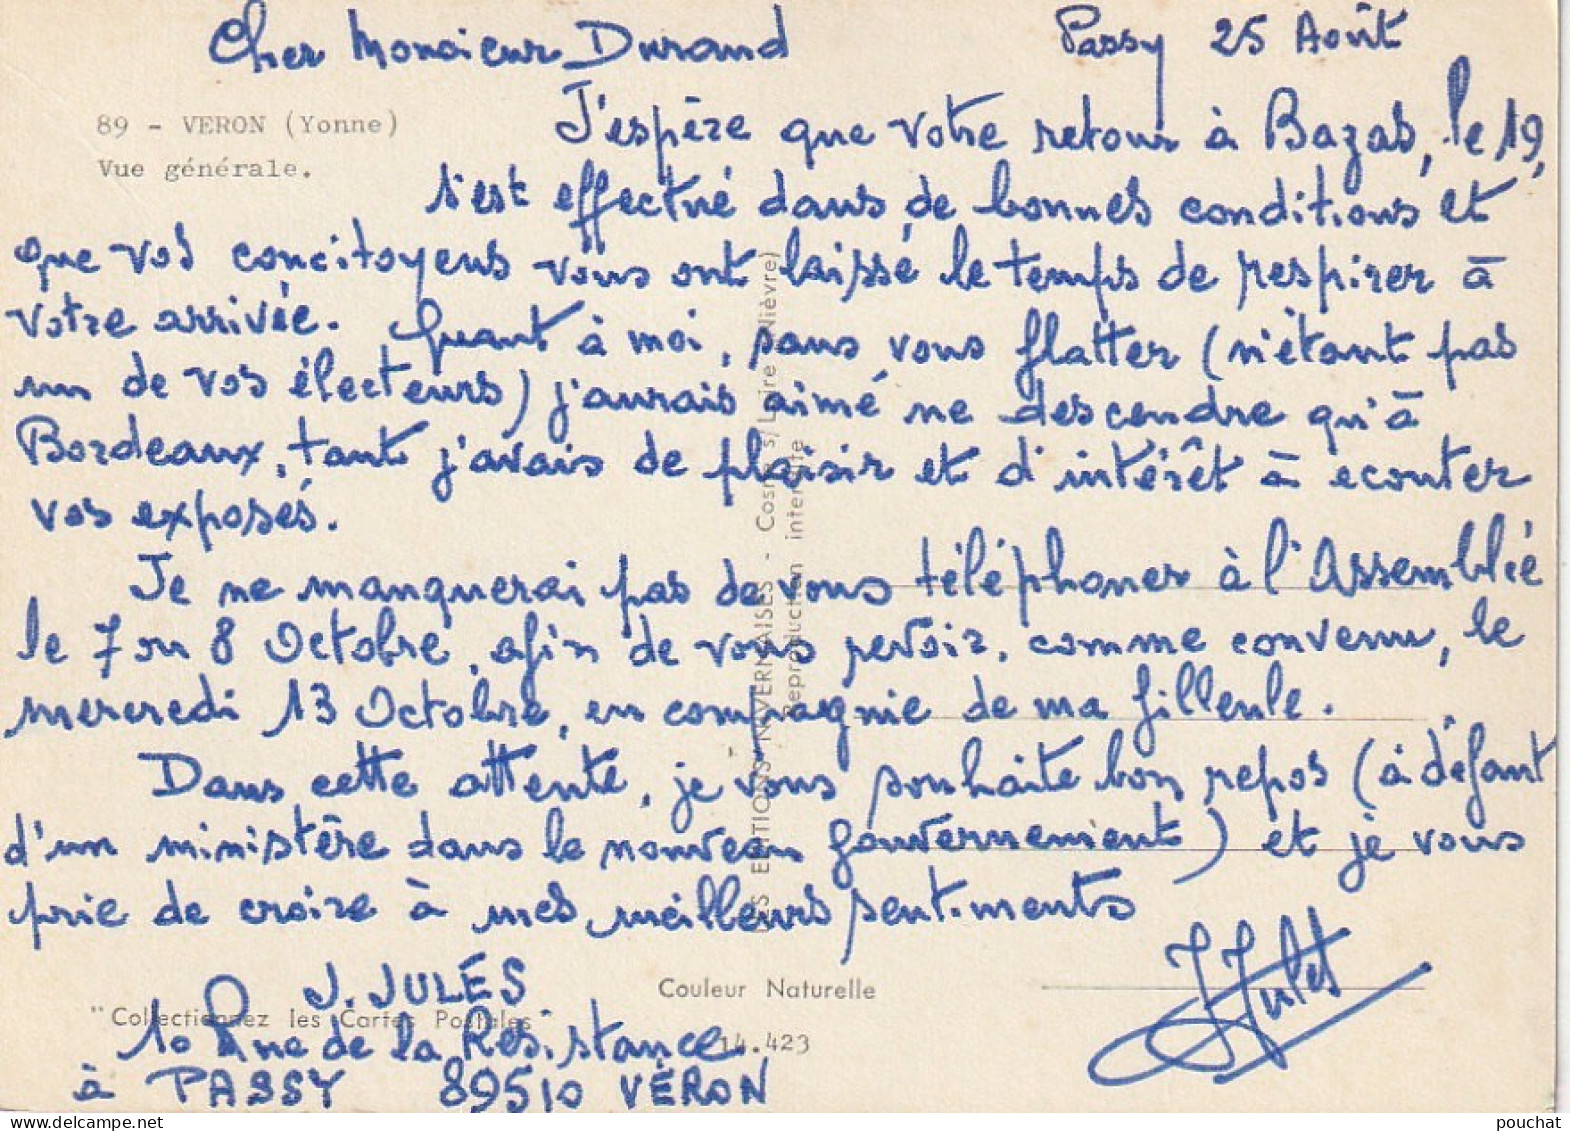 Cher Monsieur Durand
Passy 25 Août
89 - VERON (Yonne)
Vue générale.
J'espère que votre retour à Bazas, le 19,
s'est effectué dans de bonnes conditions et
que vos concitoyens vous ont laissé le temps de respirer à
votre arrivée. Quant à moi, sans vous flatter (n'étant pas
un de vos électeurs) j'aurais aimé ne descendre qu'à
Bordeaux, tant j'avais de plaisir et d'intérêt à ecouter
vos exposés.
Je ne manquerai pas de vous téléphoner à l'Assemblée
le 7 ou 8 Octobre, afin de vous revoir, comme convenu, le
mercredi 13 Octobre, en compagnie de ma filleule.
Dans cette attente, je vous souhaite bon repos (à défaut
d'un ministère dans le nouveau gouvernement) et je vous
prie de croire à mes meilleurs sentiments
J Jules
J. JULES
10 Rue de la Résistance
à PASSY 89510 VÉRON
LES EDITIONS NIVERNAISES - Cosne s/Loire (Nièvre)
Reproduction interdite
Couleur Naturelle
"Collectionnez les Cartes Postales
14.423
pouchat